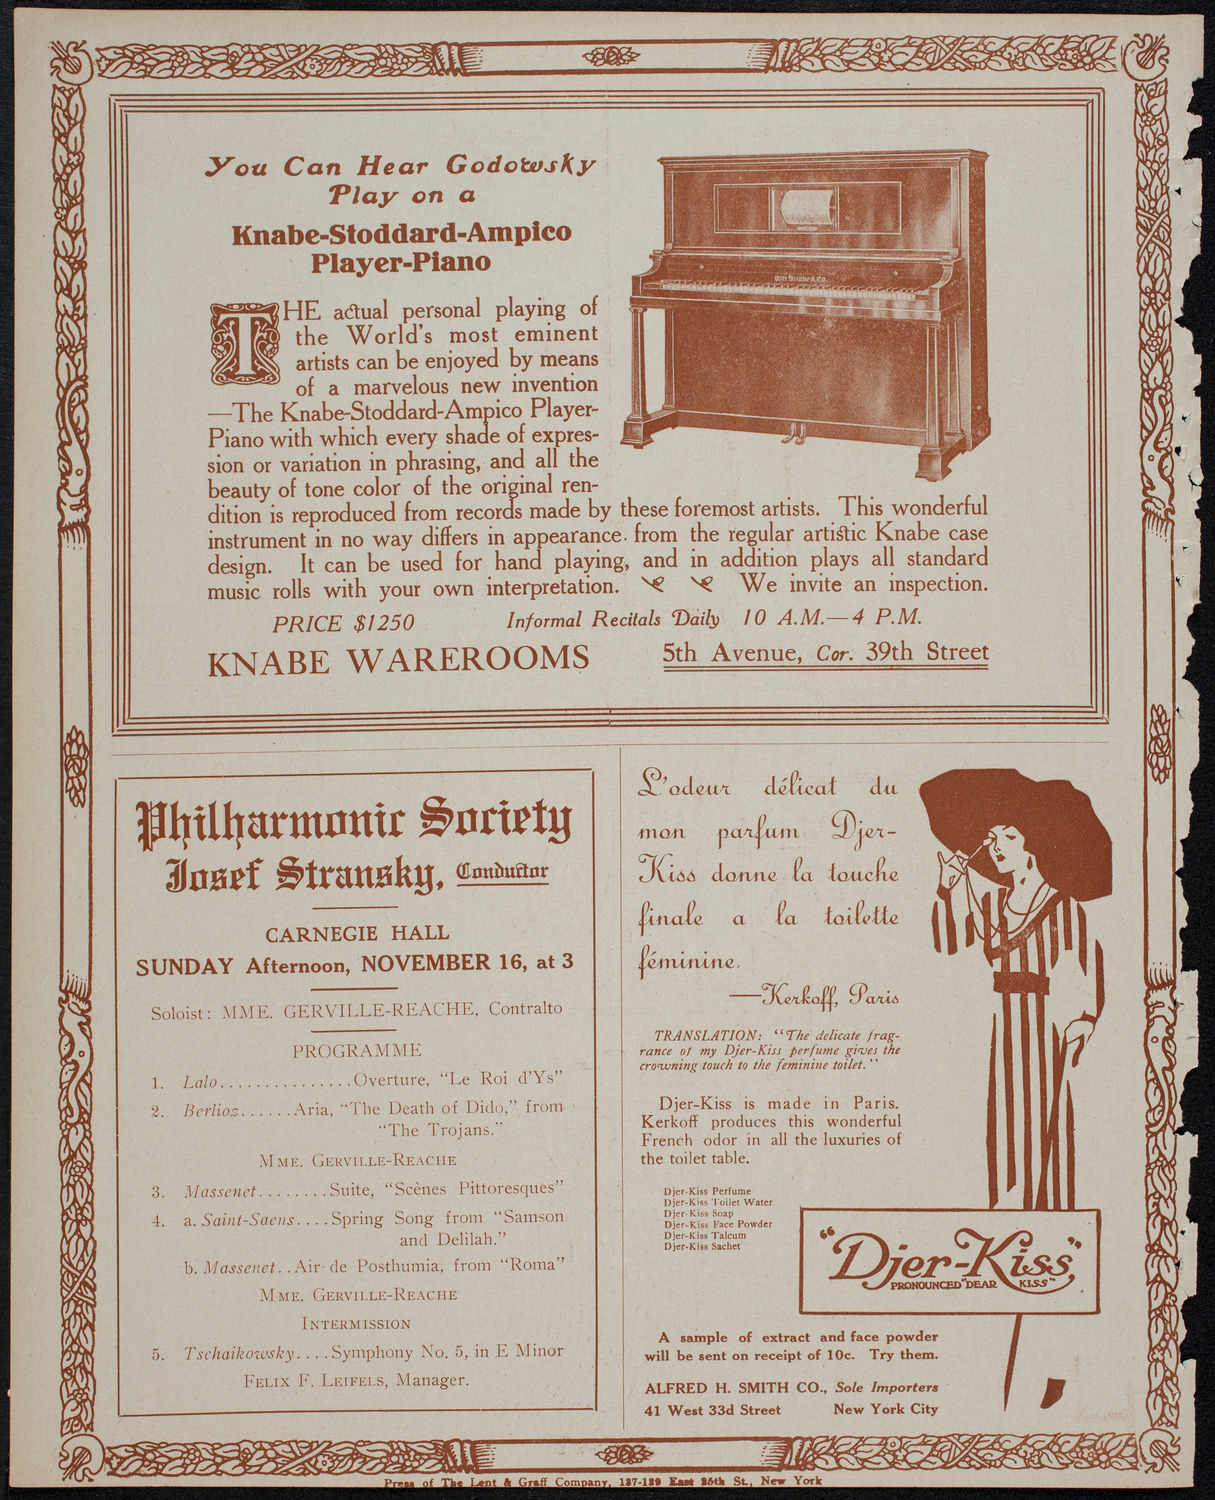 You Can Hear Godowsky
Play on a
Knabe-Stoddard-Ampico
Player-Piano
THE actual personal playing of
the World's most eminent
artists can be enjoyed by means
of a marvelous new invention
—The Knabe-Stoddard-Ampico Player-
Piano with which every shade of expres-
sion or variation in phrasing, and all the
beauty of tone color of the original ren-
dition is reproduced from records made by these foremost artists. This wonderful
instrument in no way differs in appearance from the regular artistic Knabe case
design. It can be used for hand playing, and in addition plays all standard
music rolls with your own interpretation. We invite an inspection.
PRICE $1250 Informal Recitals Daily 10 A.M.—4 P.M.
KNABE WAREROOMS 5th Avenue, Cor. 39th Street
Philharmonic Society
Josef Stransky, Conductor
CARNEGIE HALL
SUNDAY Afternoon, NOVEMBER 16, at 3
Soloist: MME. GERVILLE-REACHE, Contralto
PROGRAMME
1. Lalo...............Overture, "Le Roi d'Ys"
2. Berlioz......Aria, "The Death of Dido," from
"The Trojans."
MME. GERVILLE-REACHE
3. Massenet........Suite, "Scènes Pittoresques"
4. a. Saint-Saens....Spring Song from "Samson
and Delilah."
b. Massenet..Air de Posthumia, from "Roma"
MME. GERVILLE-REACHE
INTERMISSION
5. Tschaikowsky....Symphony No. 5, in E Minor
FELIX F. LEIFELS, Manager.
L'odeur délicat du
mon parfum Djer-
Kiss donne la touche
finale a la toilette
féminine.
—Kerkoff, Paris
TRANSLATION: "The delicate frag-
rance of my Djer-Kiss perfume gives the
crowning touch to the feminine toilet."
Djer-Kiss is made in Paris.
Kerkoff produces this wonderful
French odor in all the luxuries of
the toilet table.
Djer-Kiss Perfume
Djer-Kiss Toilet Water
Djer-Kiss Soap
Djer-Kiss Face Powder
Djer-Kiss Talcum
Djer-Kiss Sachet
"Djer-Kiss"
PRONOUNCED "DEAR KISS"
A sample of extract and face powder
will be sent on receipt of 10c. Try them.
ALFRED H. SMITH CO., Sole Importers
41 West 33d Street New York City
Press of The Lent & Graff Company, 137-139 East 25th St., New York